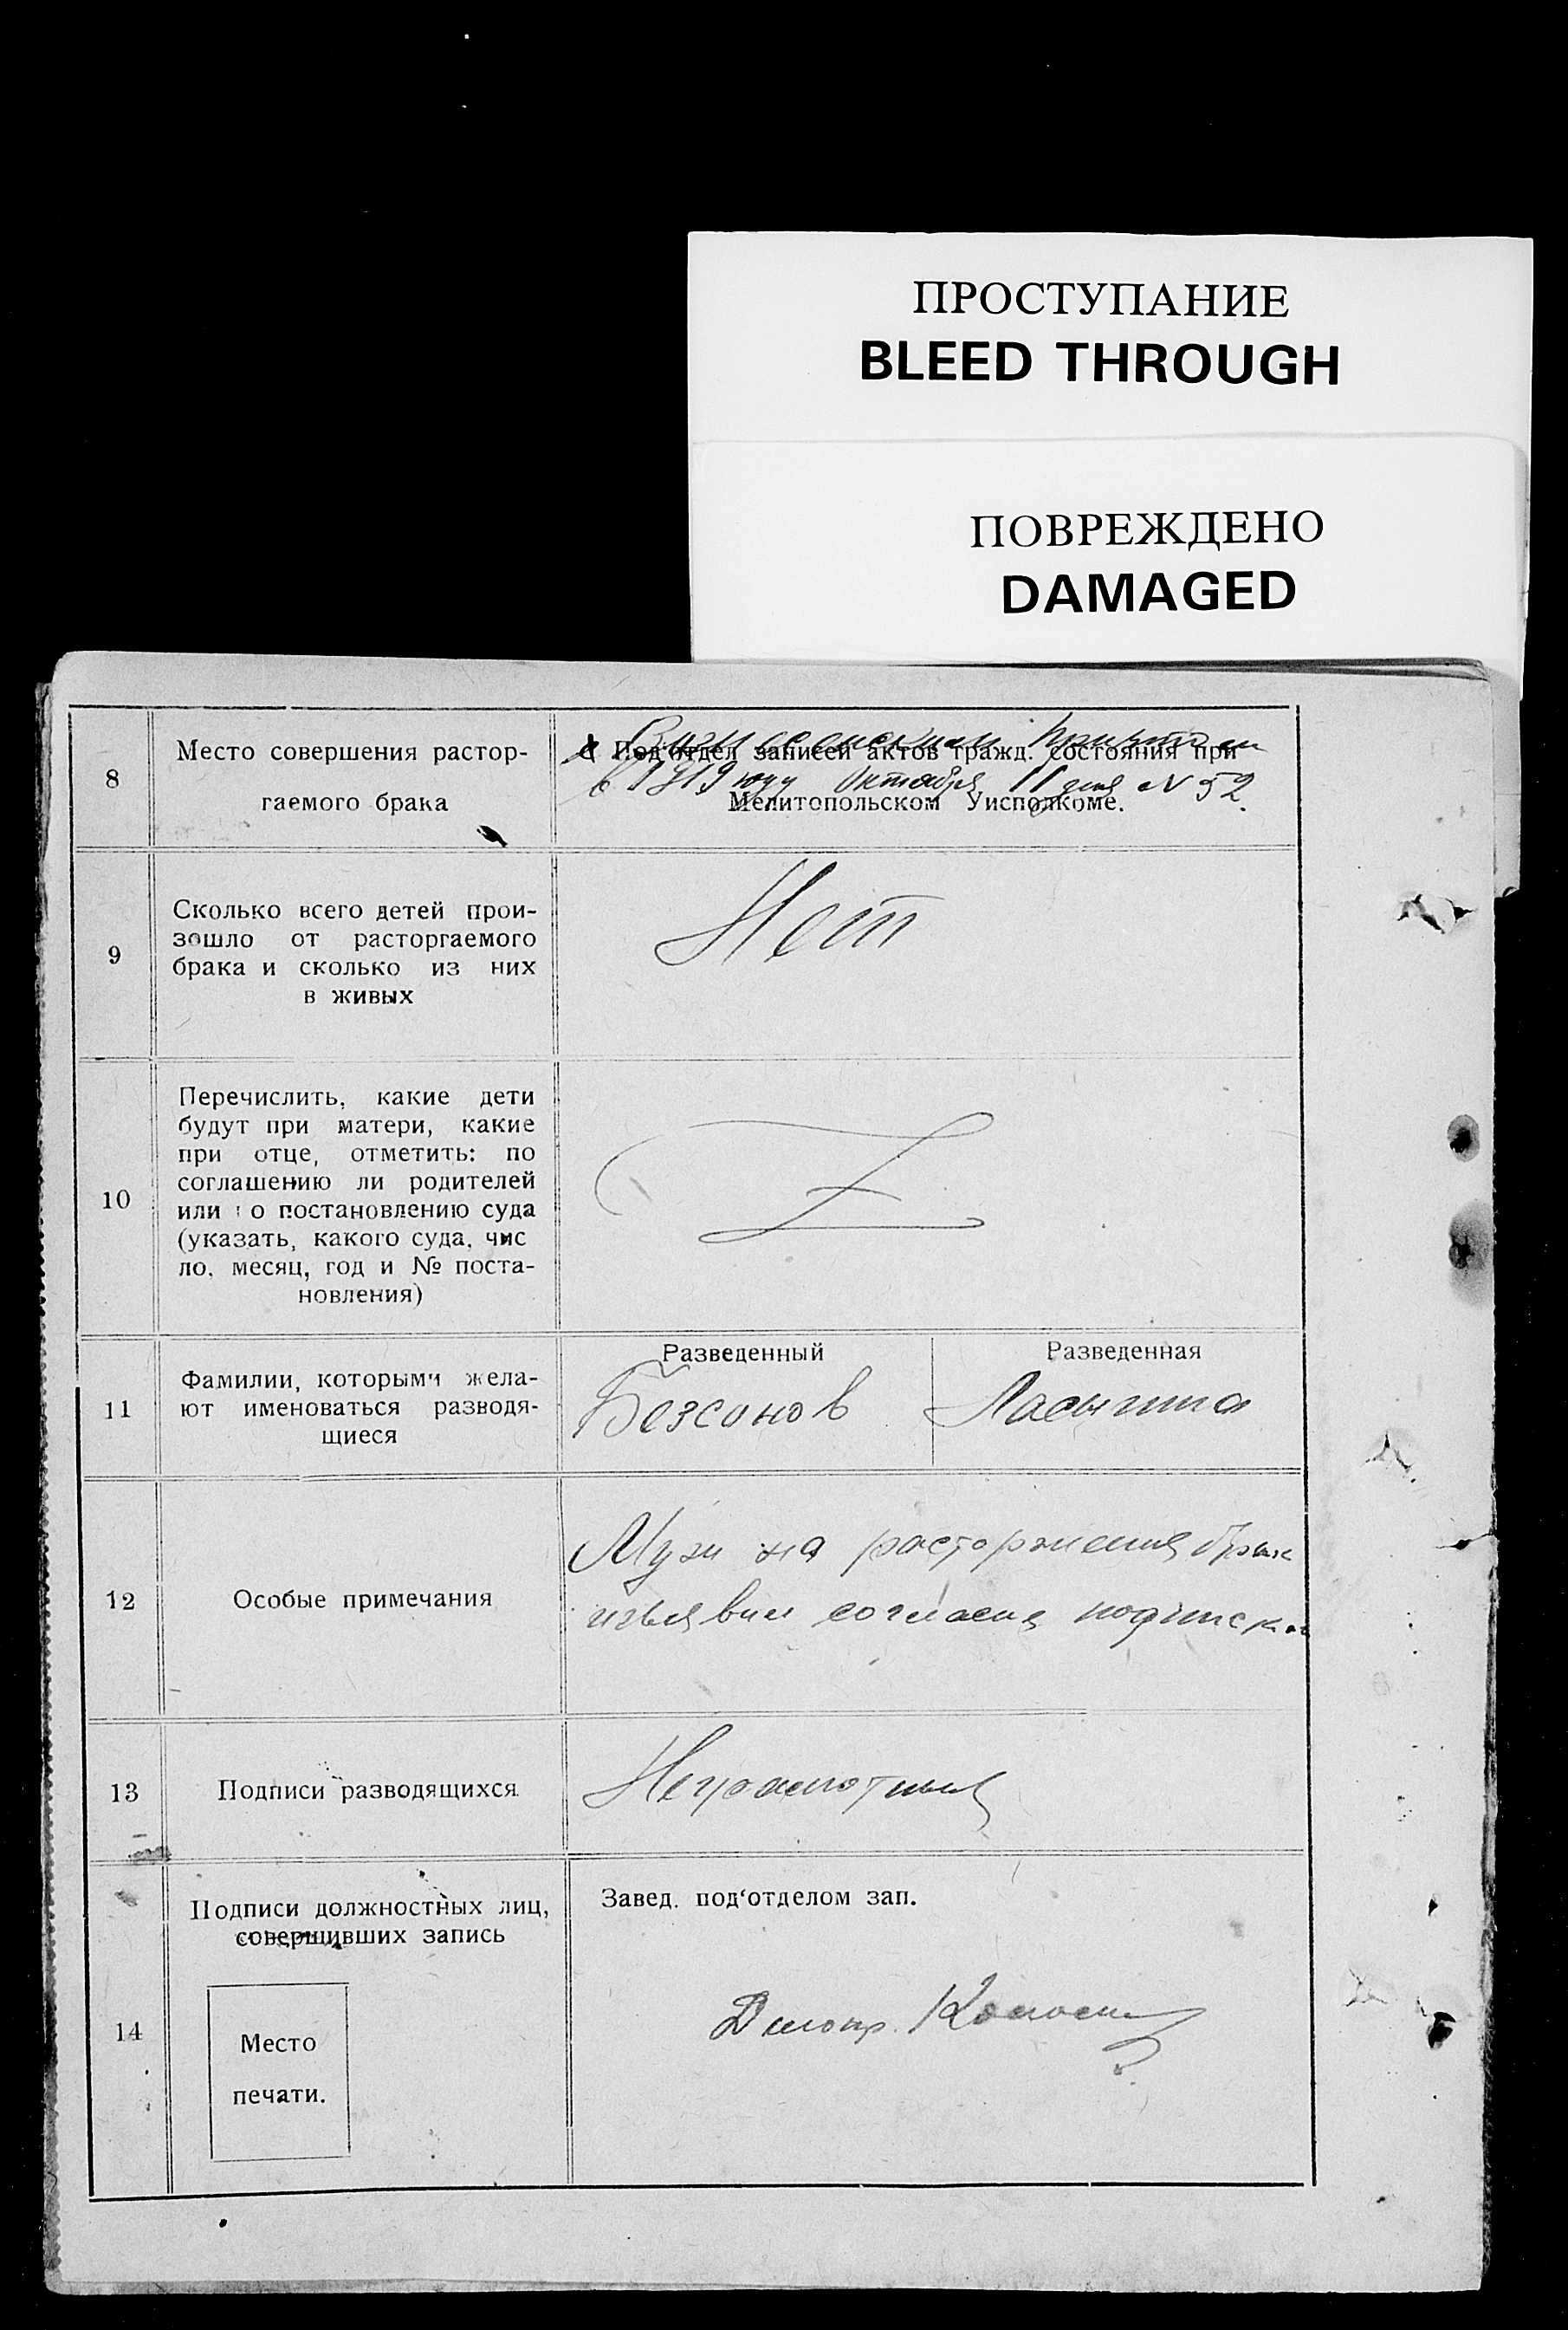 ПРОСТУПАНИЕ
BLEED THROUGH
ПОВРЕЖДЕНО
DAMAGED
8
Место совершения растор-
гаемого брака
Под‘отдел записей актов гражд. состояния при
в 1919 году Октября 11 дня N 52.
Мелитопольском Уисполкоме.
9
Сколько всего детей прои-
зошло от расторгаемого
брака и сколько из них
в живых
Нет
10
Перечислить, какие дети
будут при матери, какие
при отце, отметить: по
соглашению ли родителей
или о постановлению суда
(указать, какого суда, чис
ло, месяц, год и № поста-
новления)
11
Фамилии, которыми жела-
ют именоваться разводя-
щиеся
Разведенный
Разведенная
Безсонов
12
Особые примечания
Муж на расторжения брак
изъявил согласия подписко
13
Подписи разводящихся
Неграмотныя
14
Подписи должностных лиц,
совершивших запись
Место
печати.
Завед. под‘отделом зап.
Делопр.